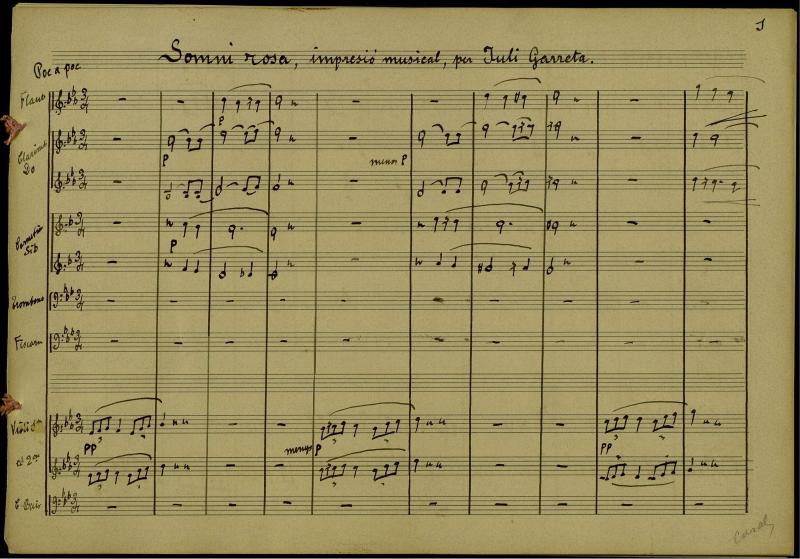 1
Somni rosa, impresió musical, per Juli Garreta.
Poc a poc
Flauta
P
Clarinets
Do
P
menos P
Cornetin
Sib
P
Trombons
Fiscorn
Violí 1er
PP
menys P
PP
id 2on
C. Baix